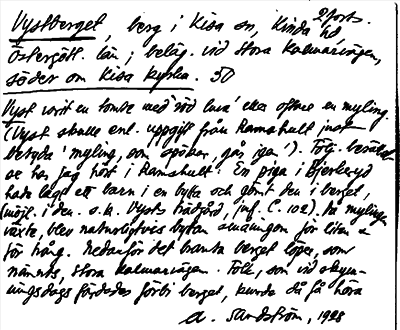 2 forts.
Vystberget, berg i Kisa sn, Kinda hd
Östergötl. län; beläg. vid stora Kalmarvägen,
söder om Kisa kyrka. 50
Vyst varit en tomte med röd luva eller oftare en myling.
(Vyst skulle enl. uppgift från Ramshult just
betyda 'myling, som spökar, går igen'). Följ. berättel-
se har jag hört i Ramshult: En piga i Bjerkeryd
hade lagt ett barn i en bytta och gömt den i berget,
(möjl. i den s.k. Vysts trädgård, jmf. C. 102). Då mylingen
växte, blev naturligtvis byttan småningom för liten o
för trång. Nedanför det branta berget löper, som
nämnts, stora Kalmarvägen. Folk, som vid skym-
ningsdags färdades förbi berget, kunde då få höra
A. Sandström, 1928